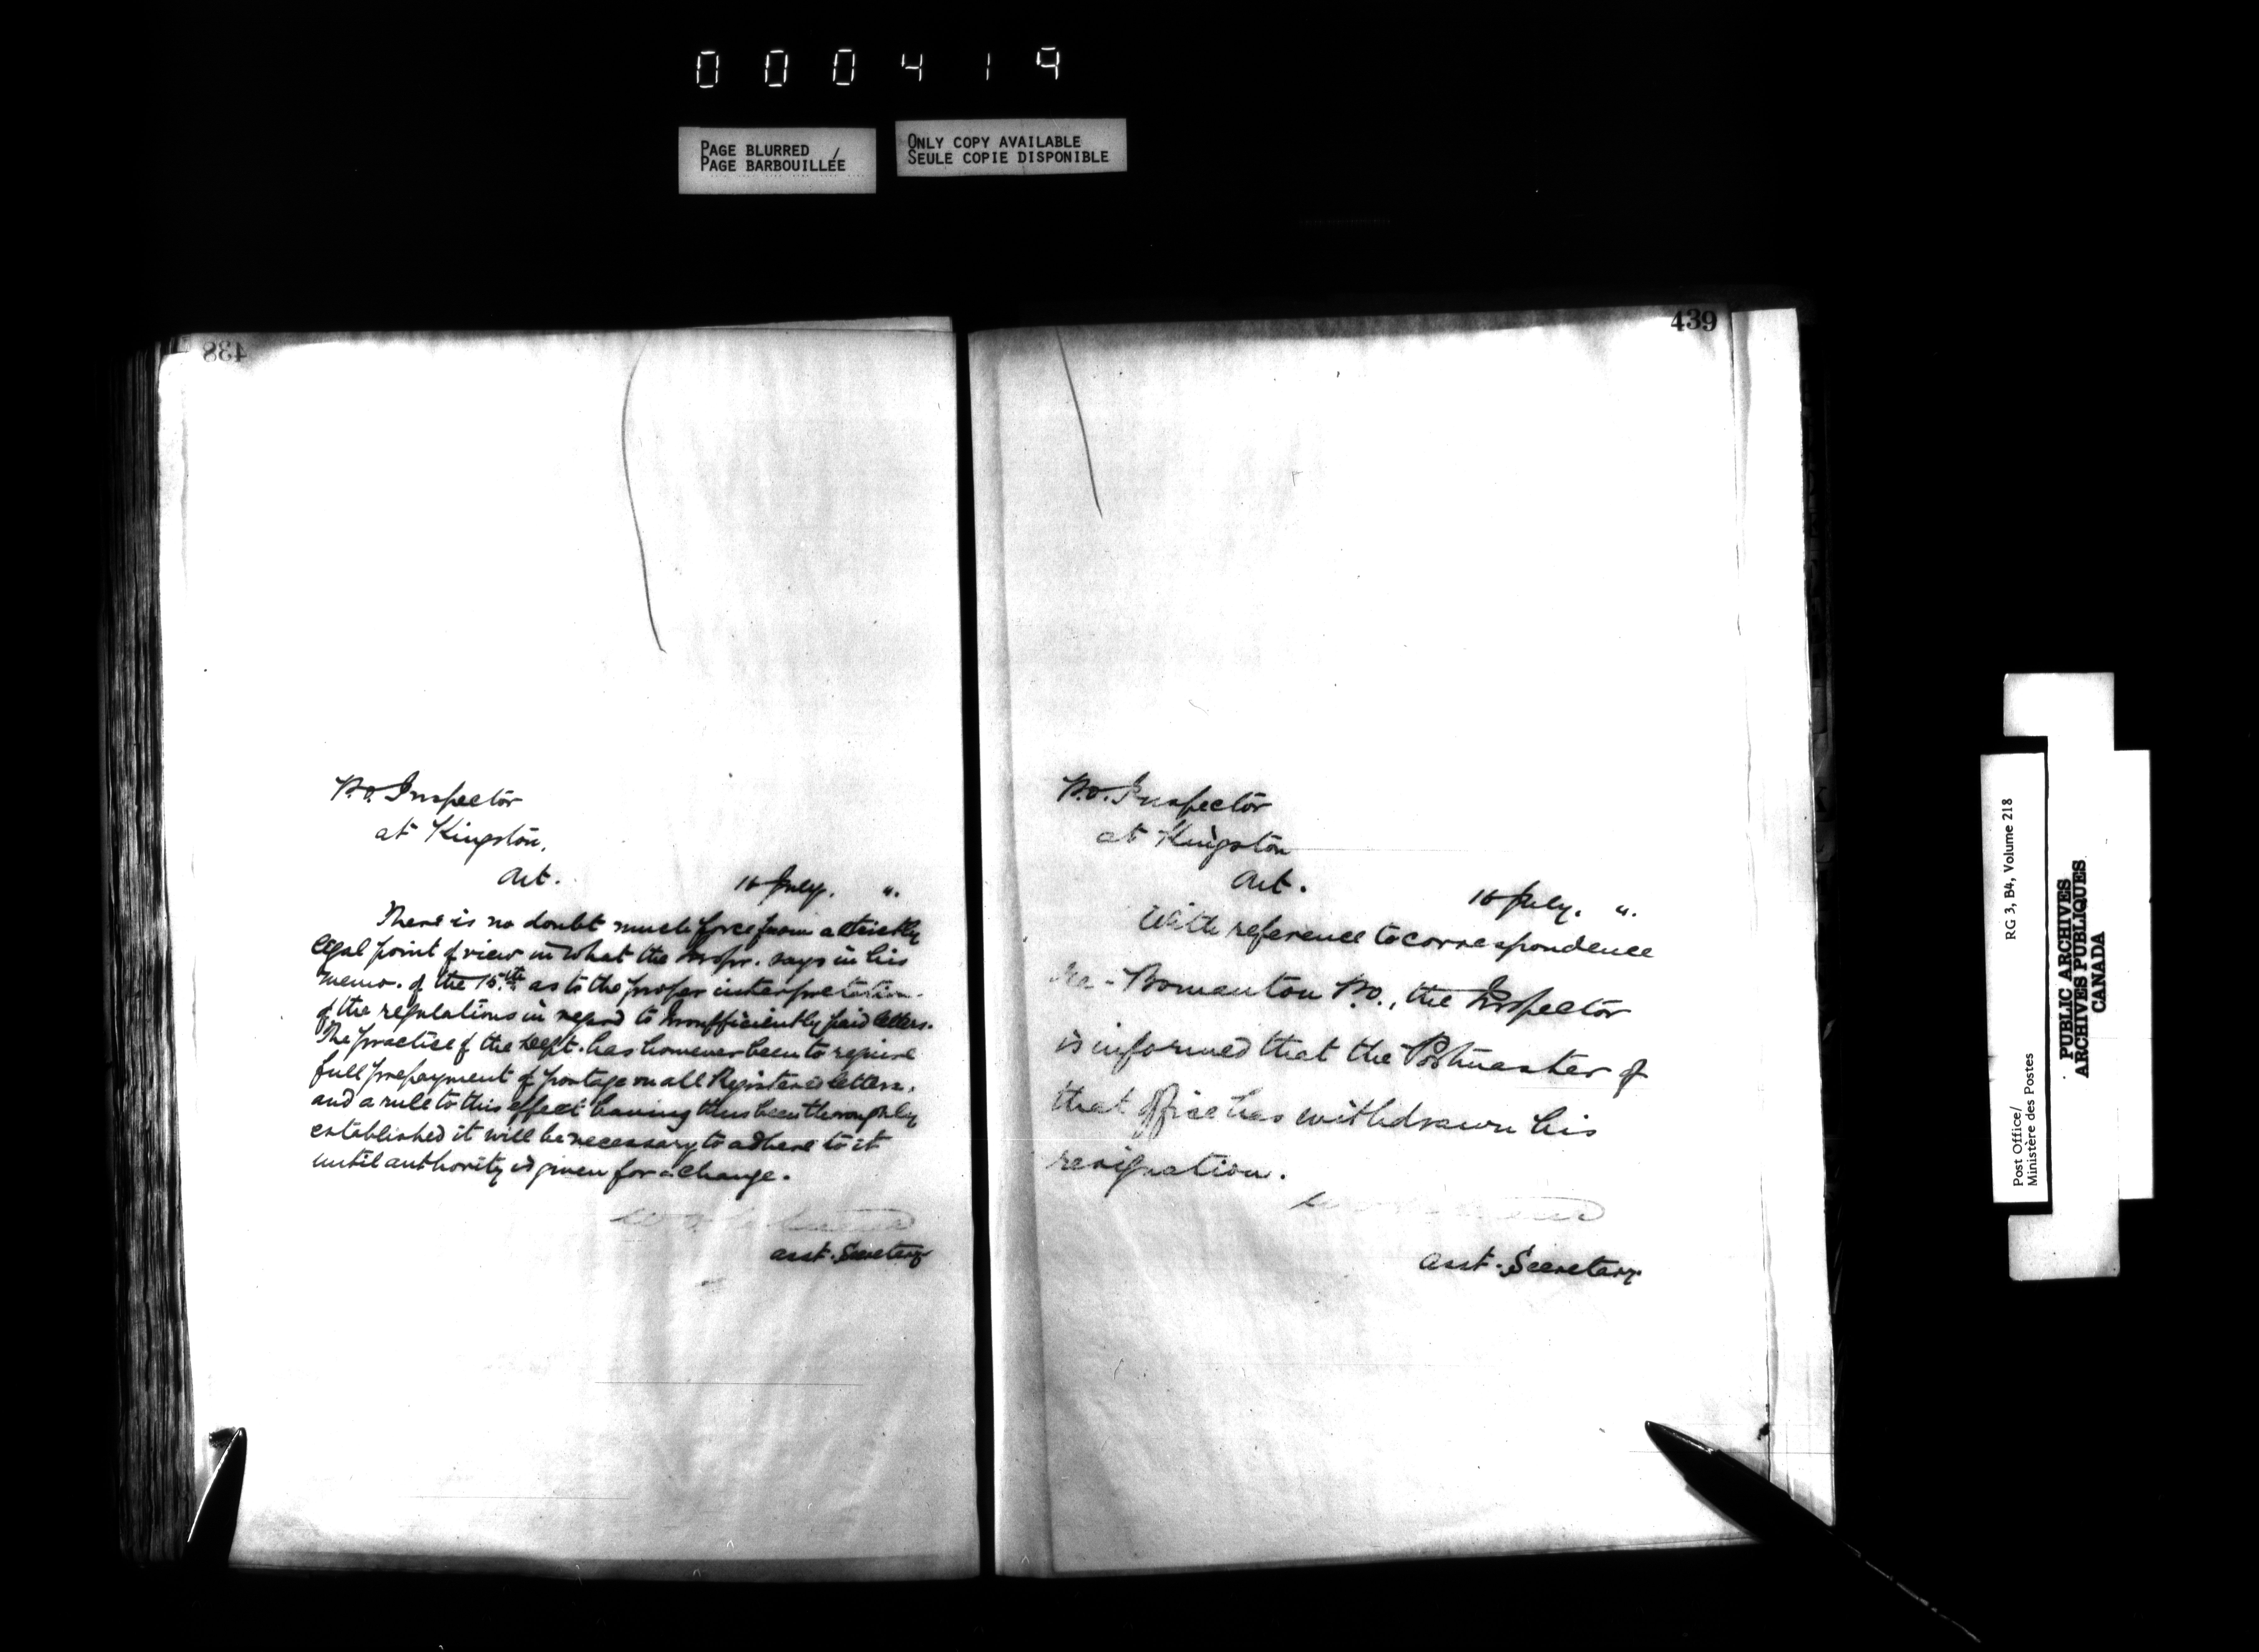 000419
PAGE BLURRED /
PAGE BARBOUILLÉE
ONLY COPY AVAILABLE
SEULE COPIE DISPONIBLE
438
P.O. Inspector
at Kingston,
Ont.
16 July. ".
There is no doubt much force from a strictly
legal point of view in what the Inspr. says in his
memo. of the 15th. as to the proper interpretation
of the regulations in regard to insufficiently paid letters.
The practice of the Dept. has however been to require
full prepayment of postage on all Registered letters,
and a rule to this effect having thus been thoroughly
established it will be necessary to adhere to it
until authority is given for a change.
Asst. Secretary
439
P.O. Inspector
at Kingston
Ont.
16 July. ".
With reference to correspondence
re - Bomanton P.O., the Inspector
is informed that the Postmaster of
that office has withdrawn his
resignation.
Asst. Secretary
Post Office/
Ministère des Postes
RG 3, B4, Volume 218
PUBLIC ARCHIVES
ARCHIVES PUBLIQUES
CANADA